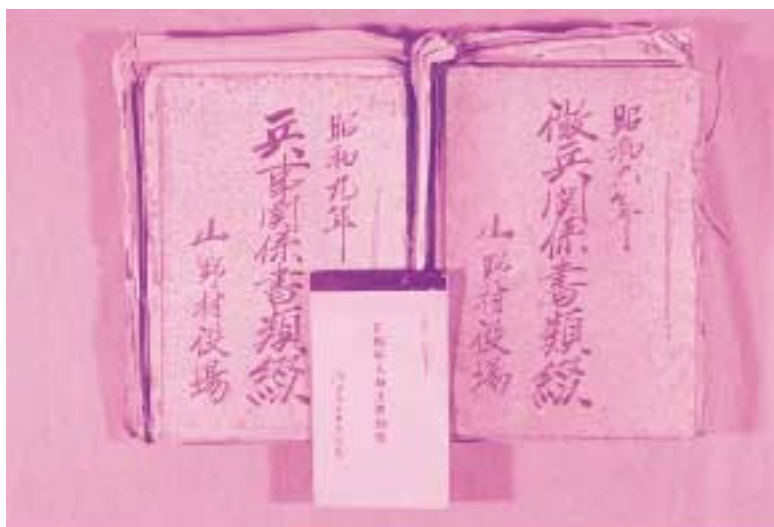 昭和六年
徴兵関係書類綴
山野村役場
昭和九年
兵事関係書類綴
山野村役場